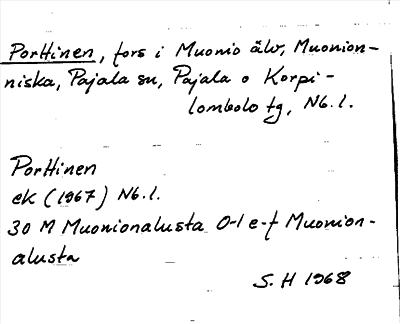 Porttinen, fors i Muonio älv, Muonion-
niska, Pajala sn, Pajala o Korpi-
lombolo tg, Nb. l.
Porttinen
ek (1967) Nb. l.
30 M Muonionalusta 0-1 e-f Muonion-
alusta
S. H 1968